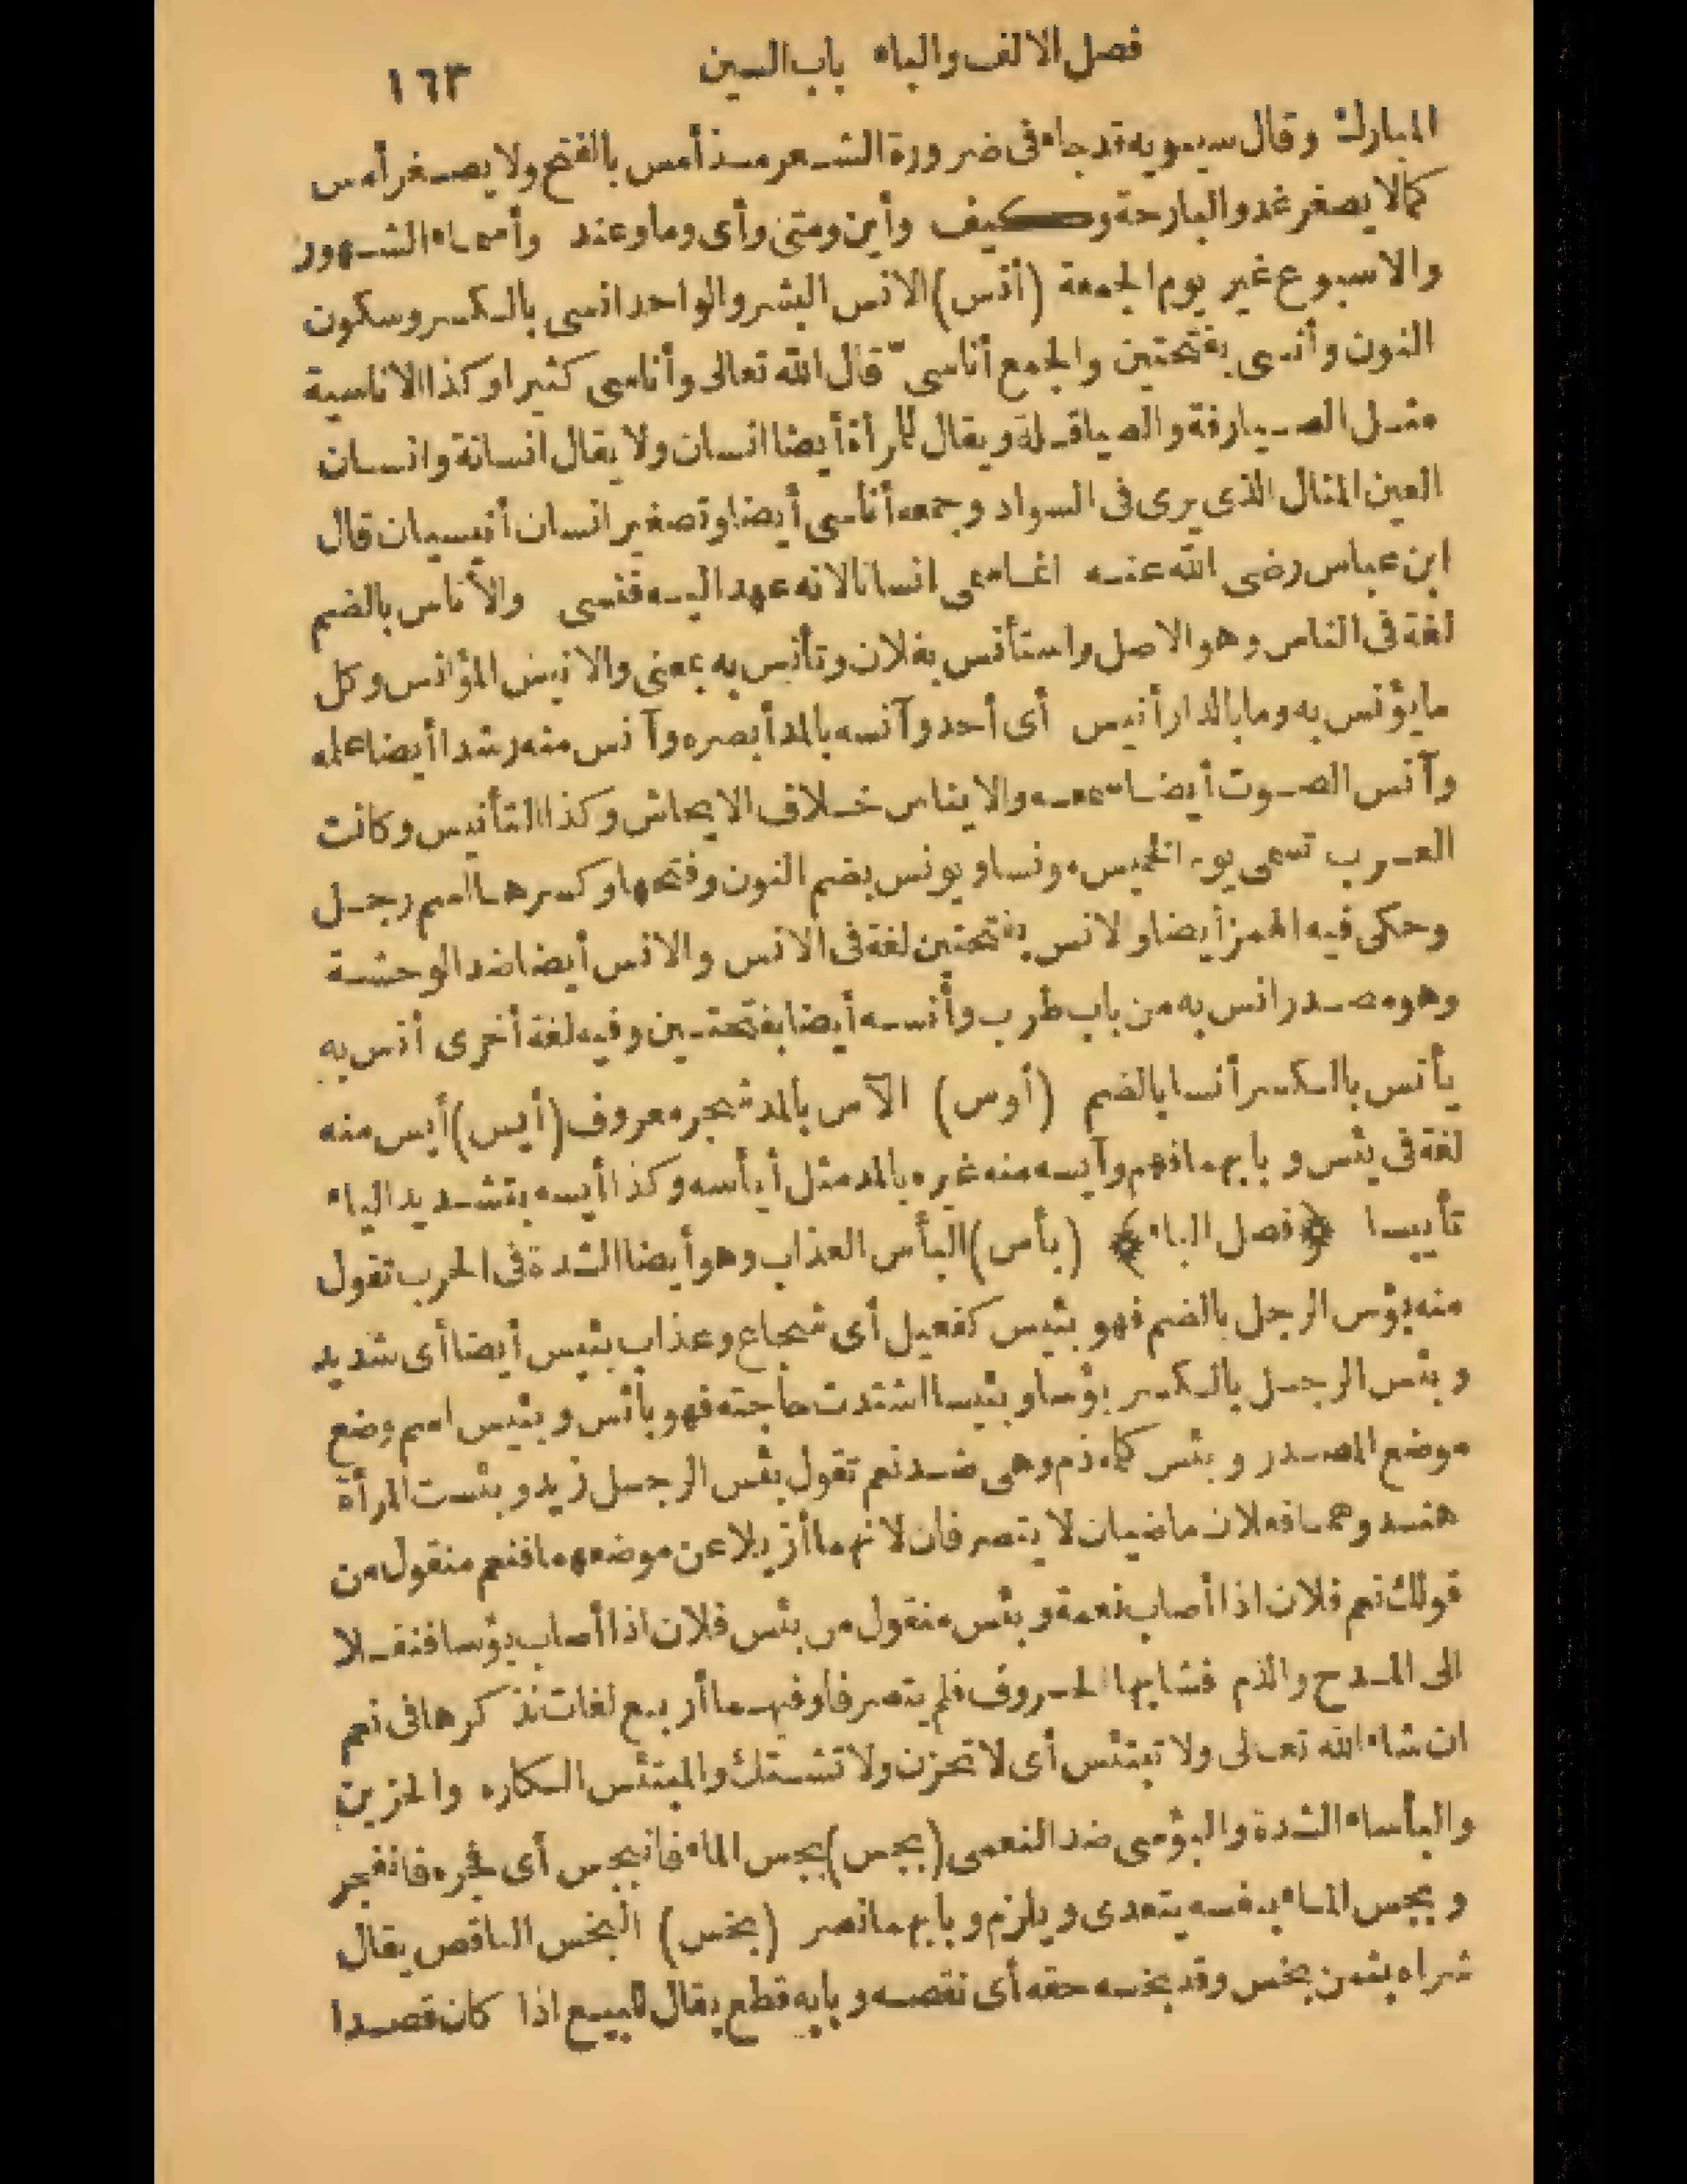 فصل الالف والباء باب السين ١٦٣
المبارك وقال سيبويه قد جاء فى ضرورة الشعر مذ أمس بالفتح ولا يصغر أمس
كما لا يصغر غد والبارحة وكيف وأين ومتى وأى وما وعند وأسماء الشهور
والاسبوع غير يوم الجمعة (أنس) الانس البشر والواحد انسى بالكسر وسكون
النون وأنسى بفتحتين والجمع أناسىّ قال الله تعالى وأناسى كثيرا وكذا الاناسية
مثل الصيارفة والصياقلة ويقال للمرأة أيضا انسان ولا يقال انسانة وانسان
العين المثال الذى يرى فى السواد وجمعه أناسى أيضا وتصغير انسان أنيسيان قال
ابن عباس رضى الله عنه انما سمى انسانا لانه عهد اليه فنسى والأناس بالضم
لغة فى الناس وهو الاصل واستأنس بفلان وتأنس به بمعنى والانيس المؤانس وكل
ما يؤنس به وما بالدار أنيس أى أحد وآنسه بالمد أبصره وآنس منه رشدا أيضا علمه
وآنس الصوت أيضا سمعه والايناس خلاف الايحاش وكذا التأنيس وكانت
العرب تسمى يوم الخميس مونسا ويونس بضم النون وفتحها وكسرها اسم رجل
وحكى فيه الهمز أيضا والانس بفتحتين لغة فى الانس والانس أيضا ضد الوحشة
وهو مصدر انس به من باب طرب وأنسه أيضا بفتحتين وفيه لغة أخرى أنس به
يأنس بالكسر أنسا بالضم (أوس) الآس بالمد شجر معروف (أيس) أيس منه
لغة فى يئس وبابهما فهم وآيسه منه غيره بالمد مثل أيأسه وكذا أيسه بتشديد الياء
تأييسا ﴿فصل الباء﴾ (بأس) البأس العذاب وهو أيضا الشدة فى الحرب تقول
منه بؤس الرجل بالضم فهو بئيس كفعيل أى شجاع وعذاب بئيس أيضا أى شديد
وبئس الرجل بالكسر بؤسا وبئيسا اشتدت حاجته فهو بائس وبئيس اسم وضع
موضع المصدر وبئس كلمة ذم وهى ضد نعم تقول بئس الرجل زيد وبئست المرأة
هند وهما فعلان ماضيان لا يتصرفان لانهما أزيلا عن موضعهما فنعم منقول من
قولك نعم فلان اذا أصاب نعمة وبئس منقول من بئس فلان اذا أصاب بؤسا فنقلا
الى المدح والذم فشابها الحروف فلم يتصرفا وفيهما أربع لغات نذكرها فى نعم
ان شاء الله تعالى ولا تبتئس أى لا تحزن ولا تشتك والمبتئس الكاره والحزين
والبأساء الشدة والبؤسى ضد النعمى (بجس) بجس الماء فانبجس أى فجره فانفجر
وبجس الماء بنفسه يتعدى ويلزم وبابهما نصر (بخس) البخس الناقص يقال
شراه بثمن بخس وقد بخسه حقه أى نقصه وبابه قطع يقال للبيع اذا كان قصدا